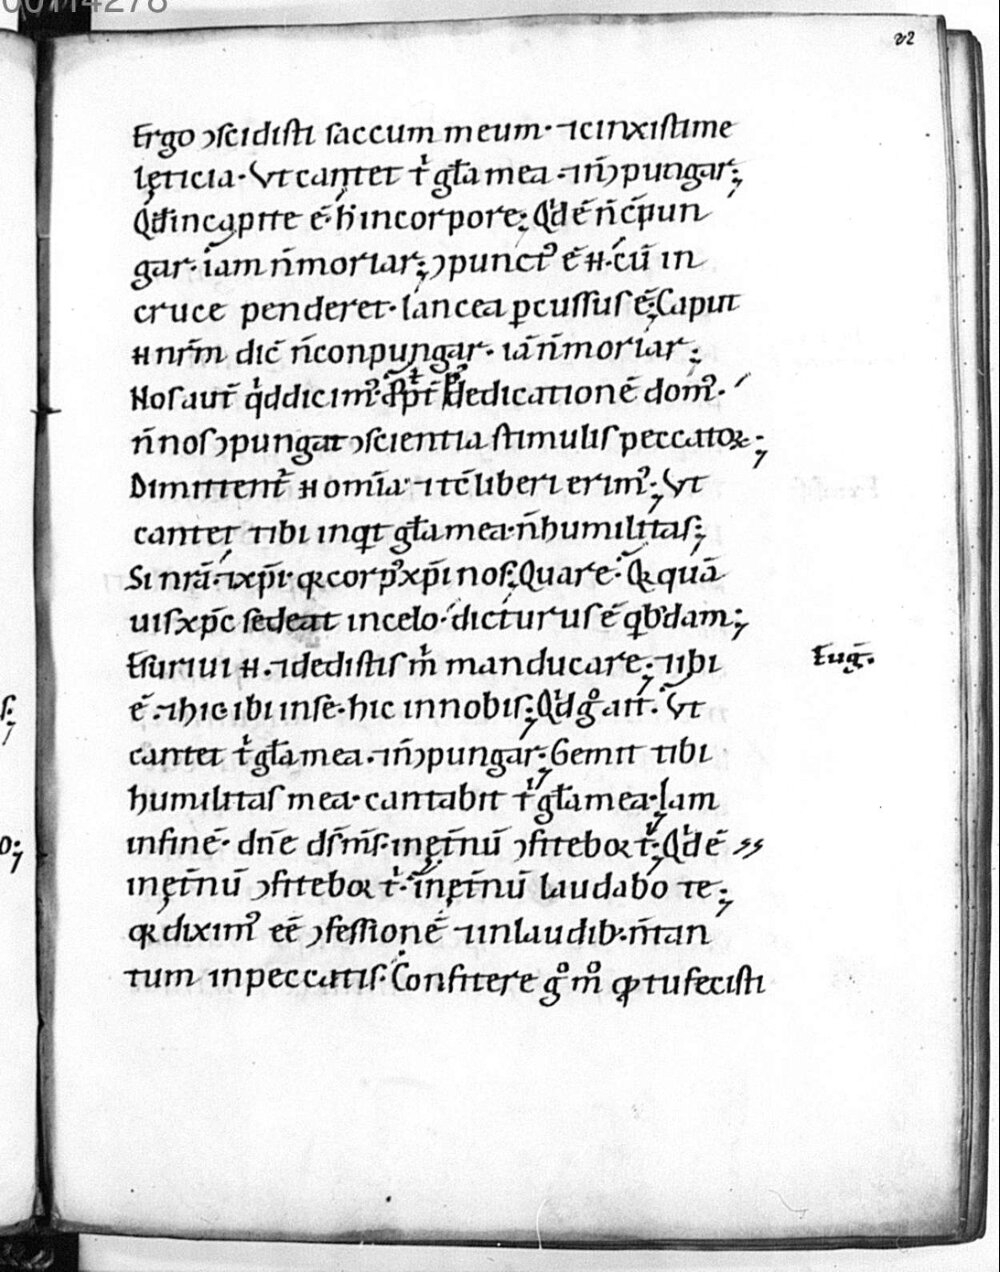 00114278
22
Ergo ↄſcidiſti ſaccum meum· ⁊cinxiſtime
lęticia· Vt cantet t͛ gła mea ·⁊in̄ↄpungar;
Qđ incapite ē· h̄ incorpore; Qͥd ē n̄c̄pun
gar· iam n̄moriar; ↄpunctꝰ ē H· cū in
cruce penderet· lancea ꝑcuſſuſ ē; Caput
H nr̄m dic̄ n̄conpungar· iā n̄moriar;
Noſ aut̄ qͥd dicimꝰ· ꝓpt̄ dedicationē domꝰ·
n̄noſ ↄpungat ↄſcientia ſtimuliſ peccatoꝝ;
Dimittent᷑ H om̄ia· ⁊tc̄ liberi erimꝰ; Vt
cantet tibi inqt gła mea· n̄humilitaſ;
Si nrā· ⁊xp̄i· qꝛ corpꝰ xp̄i noſ; Quare· Qꝛ quā
uiſ xp̄c ſedeat incelo· dicturuſ ē qbꝰdam;
Eſuriui H· ⁊dediſtiſ m̄ manducare; ⁊ibi
Eug̅·
ē· ⁊hic ibi inſe· hic innobiſ; Qͥd gͦ ait· Vt
cantet t͛ gła mea· ⁊in̄ↄpungar; Gemit tibi
humilitaſ mea· cantabit t͛ gła mea· Iam
infinē· dn̄e dſ̄ m̄ſ· inęt̄nū ↄfitebor t͛; Qͥd ē
inęt̄nū ↄfitebor t͛· inęt̄nū laudabo te;
qꝛ diximꝰ eē ↄfeſſionē ⁊inlaudib· n̄tan
tum inpeccatiſ· Confitere gͦ m̊ ꝙ tu feciſti